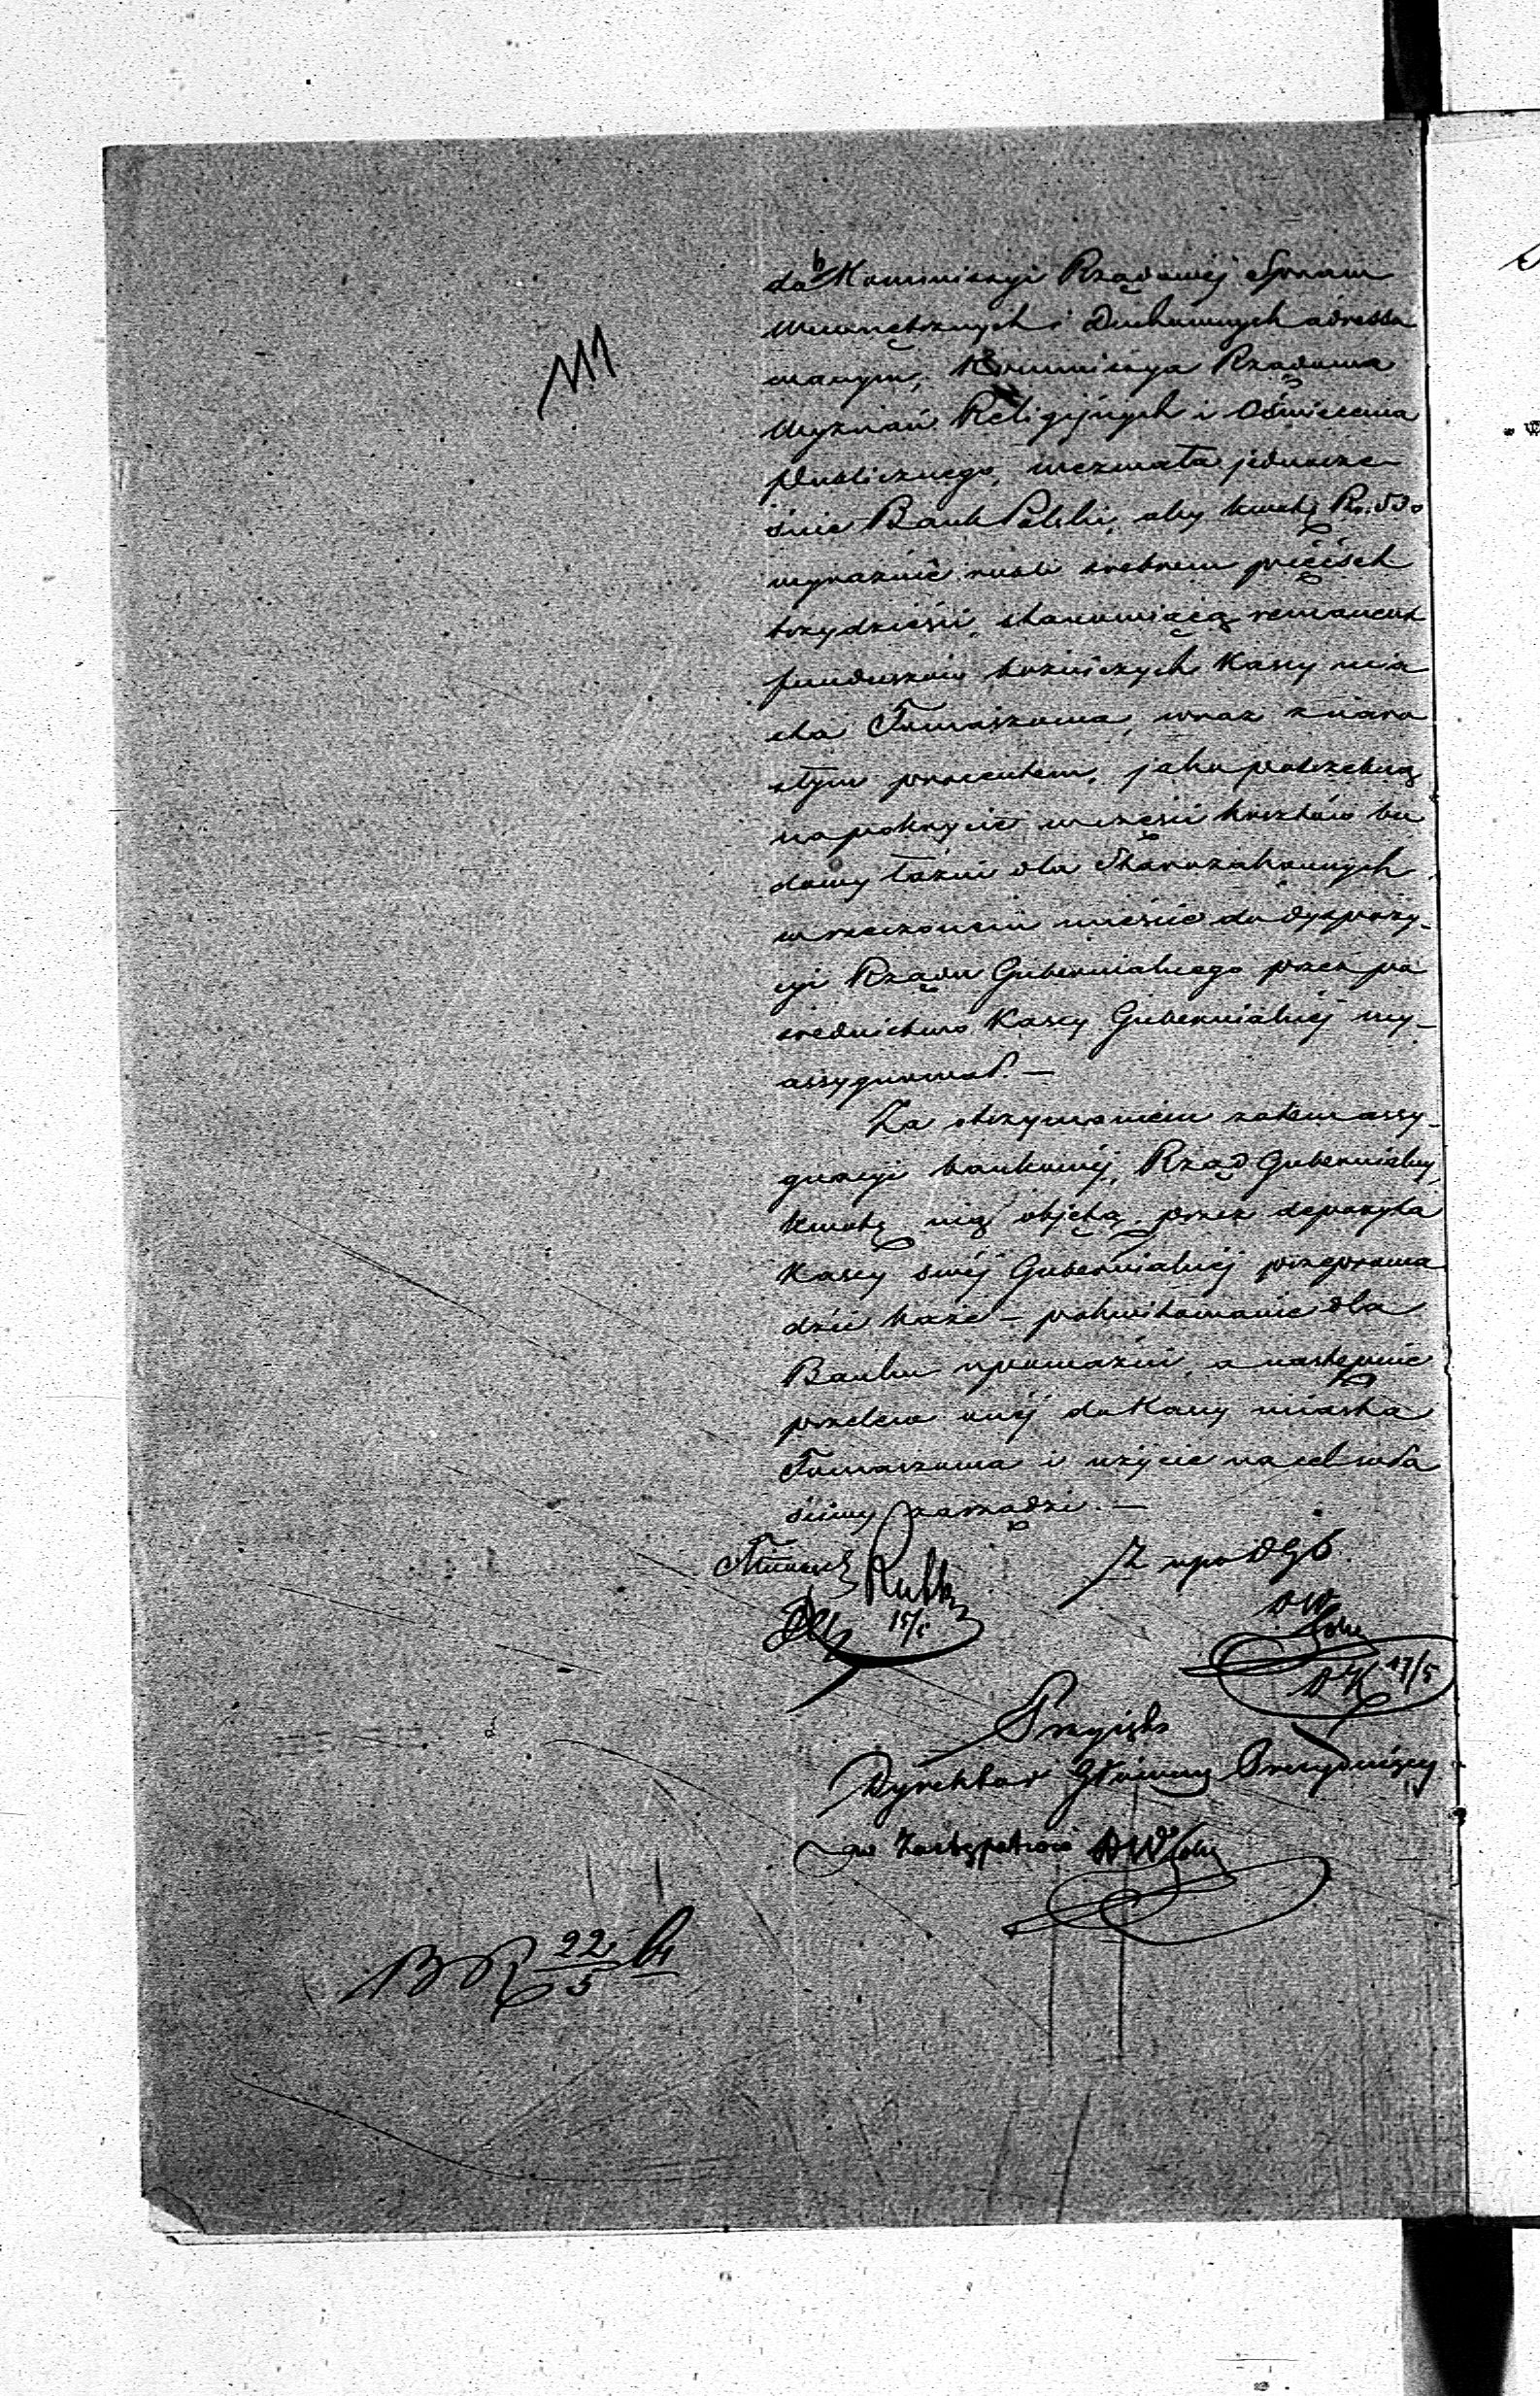 do Kommissyi Rządowéj Spraw
Wewnętrznych i Duchownych adresso
wanym, Kommissya Rządowa
Wyznań Religijnych i Oświecenia
Publicznego, wezwała jednocze-
śnie Bank Polski, aby kwotę Rs. 530
wyraźnie rubli srebrem pięćset
trzydzieści, stanowiącą remanent
funduszów bożniczych Kassy mia
sta Tomaszowa, wraz z naro
słym procentem, jako potrzebną
na pokrycie w części kosztów bu
dowy łaźni dla Starozakonnych
w rzeczonem mieście do dyspozy-
cyi Rządu Gubernialnego przez po
srednictwo Kassy Gubernialnéj wy-
assygnował. —
Za otrzymaniem zatem assy-
gnacyi bankowéj, Rząd Gubernialny,
kwotę nią objętą, przez depozyta
Kassy swéj Gubernialnéj przeprowa
dzić każe – pokwitowanie dla
Banku upoważni, a następnie
przelew onéj do Kassy miasta
Tomaszowa i użycie na cel wła
ściwy zarządzi. —
15/5
17/5
Przyjęto
Dyrektor Główny Prezydujący
w Zastępstwie
22/5